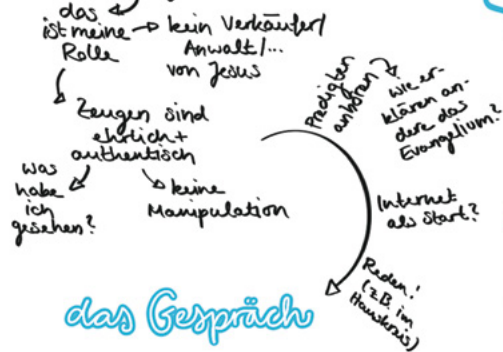 das
ist meine
Rolle
kein Verkäufer/
Anwalt/...
von Jesus
Zeugen sind
ehrlich +
authentisch
was
habe
ich
gesehen?
keine
Manipulation
Predigten
anhören
wie er-
klären an-
dere das
Evangelium?
Internet
als Start?
Reden!
(z.B. im
Hauskreis)
das Gespräch